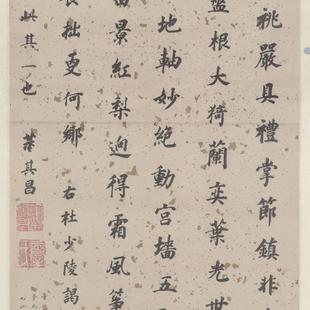 祧嚴具禮掌節鎮非
盤根大猗蘭奕葉光世
地軸妙絕動宮墻五
景紅梨迥得霜風箏
拙更何鄉 右杜少陵謁
其一也 董其昌